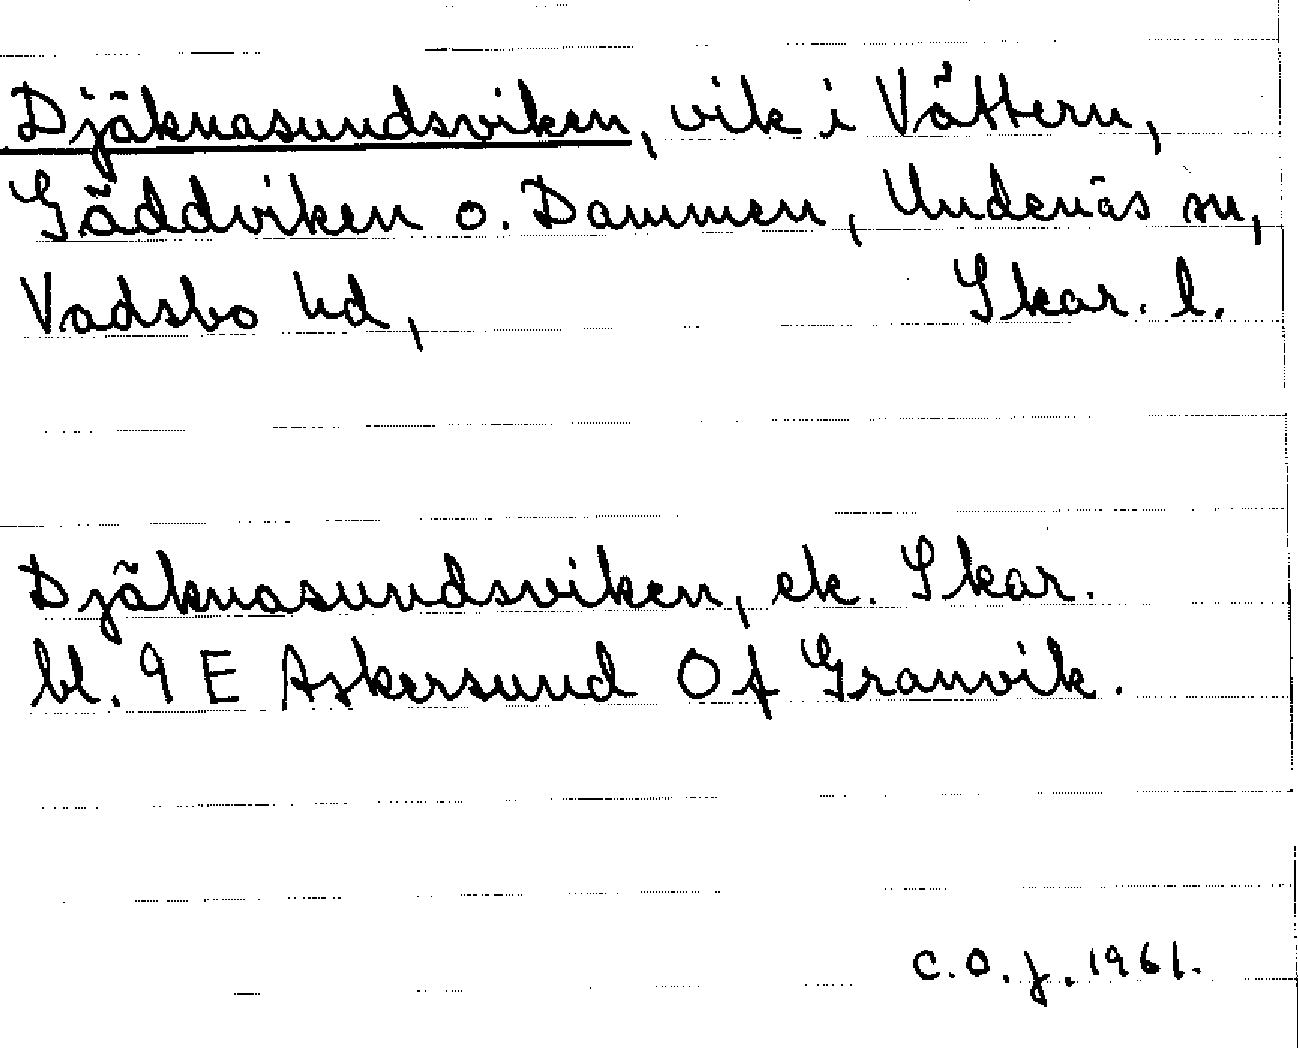 Djäknasundsviken, vik i Vättern,
Gäddviken o. Dammen, Undenäs sn,
Vadsbo hd, Skar. l.
Djäknasundsviken, ek. Skar.
bl. 9 E Askersund 0 f Granvik.
C.O.J. 1961.